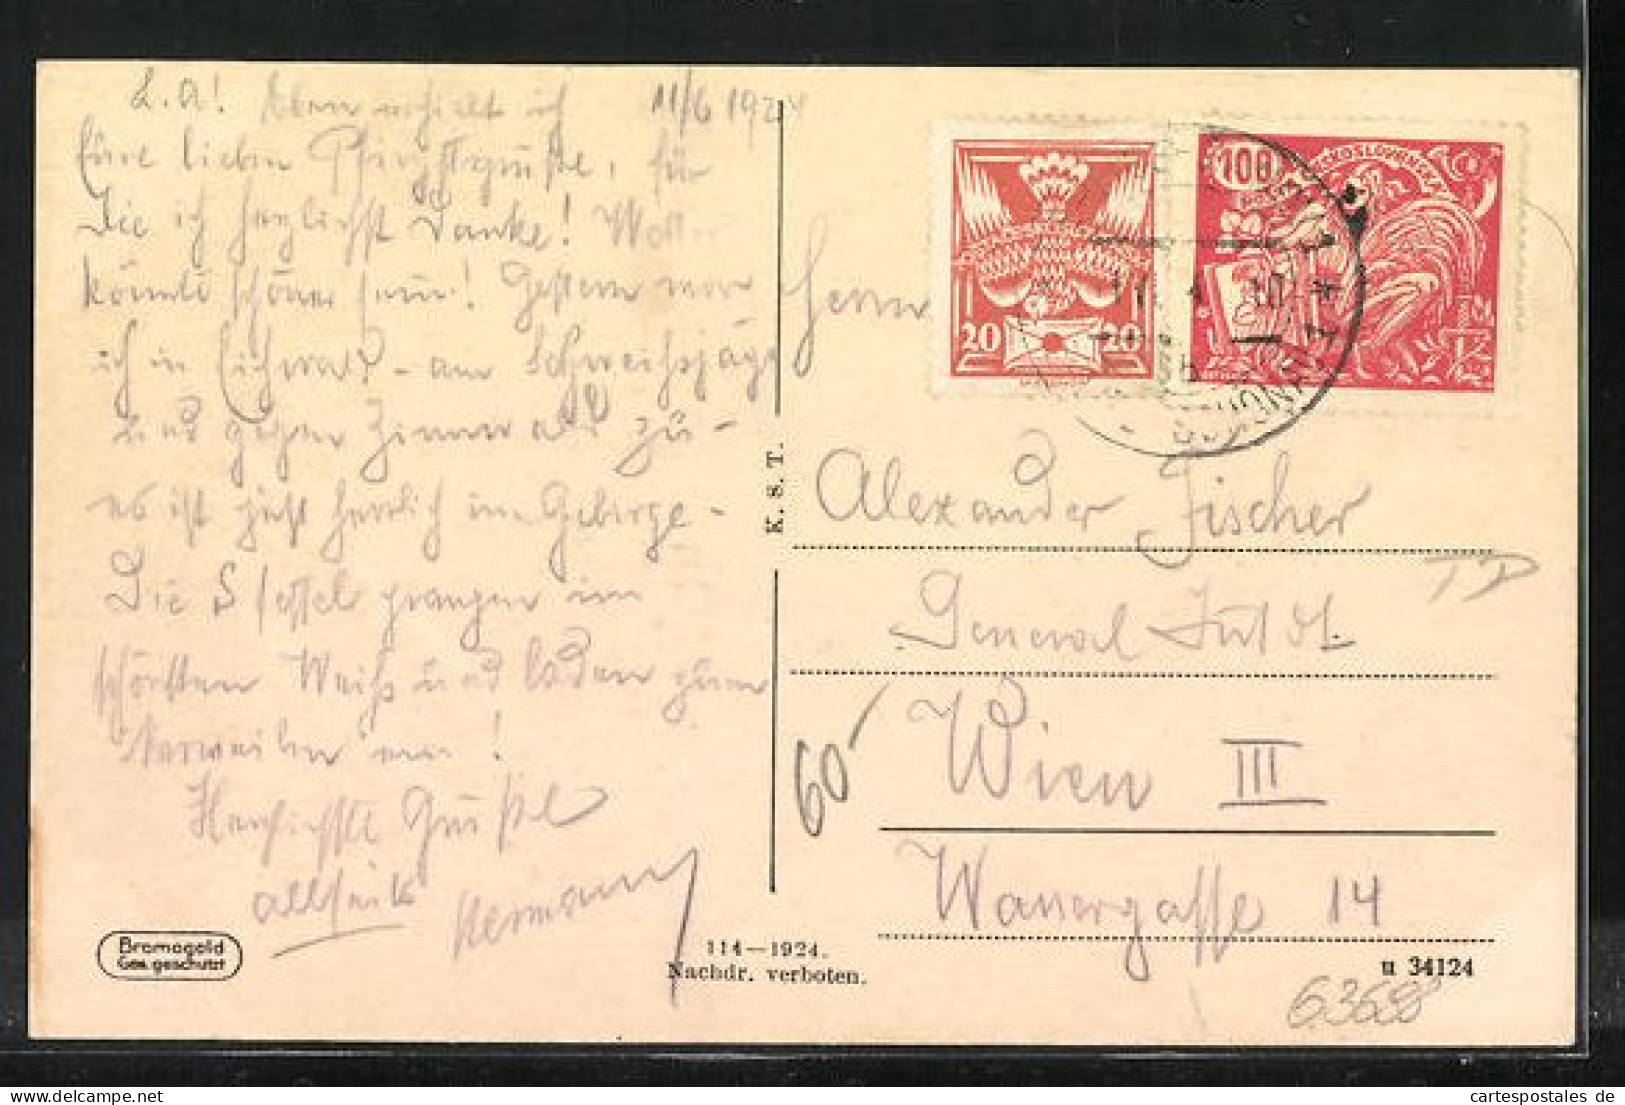 L. A! Eben erhielt ich 11/6 1924
Eure lieben Pfingstgrüße, für
Die ich herzlichst Danke!
könnte schöner sein! Gestern war
ich in Eichwald - am Schweissjäger
und gegen Zinnwald zu -
es ist jetzt herrlich im Gebirge -
Die prangen im
schönsten Weiß und laden zum
Verweilen ein!
Herzlichste Grüße
allseits Hermann
Bromogold
Ges. geschützt
114—1924.
Nachdr. verboten.
K. S. T.
20 20
100
Herrn
Alexander Fischer
General
Wien III
60
14
u 34124
TP
cartespostales de